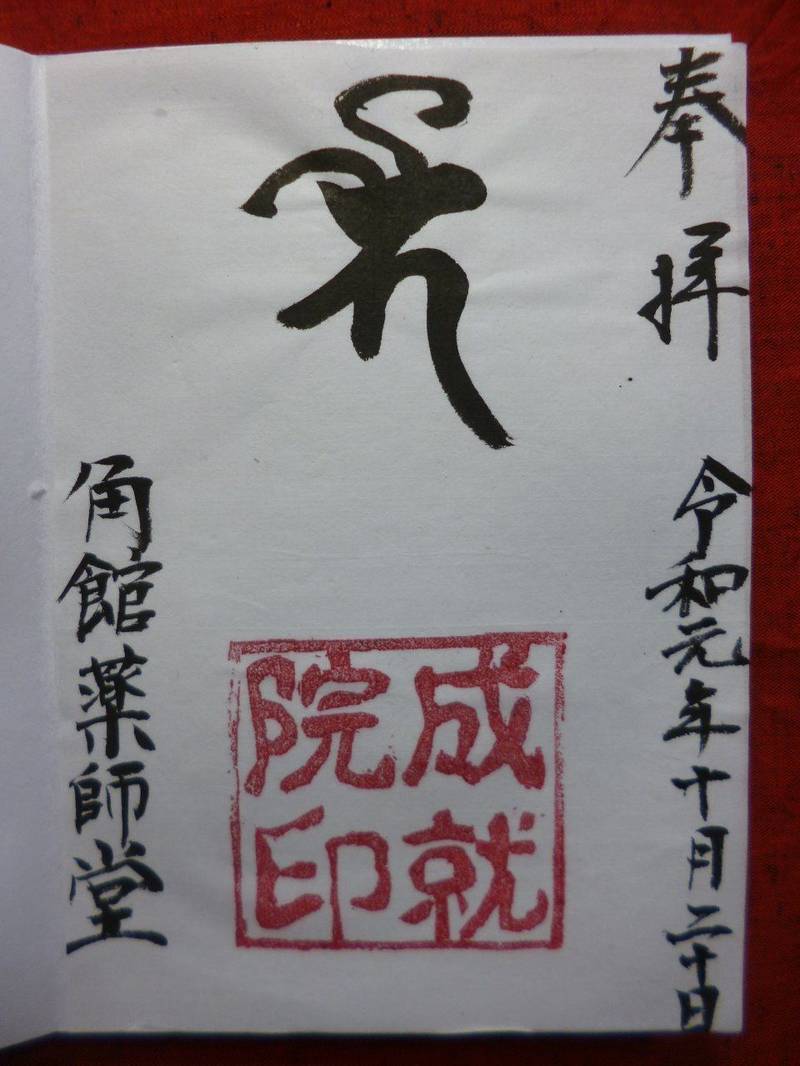 奉拝
令和元年十月二十日
成就
院印
角館薬師堂